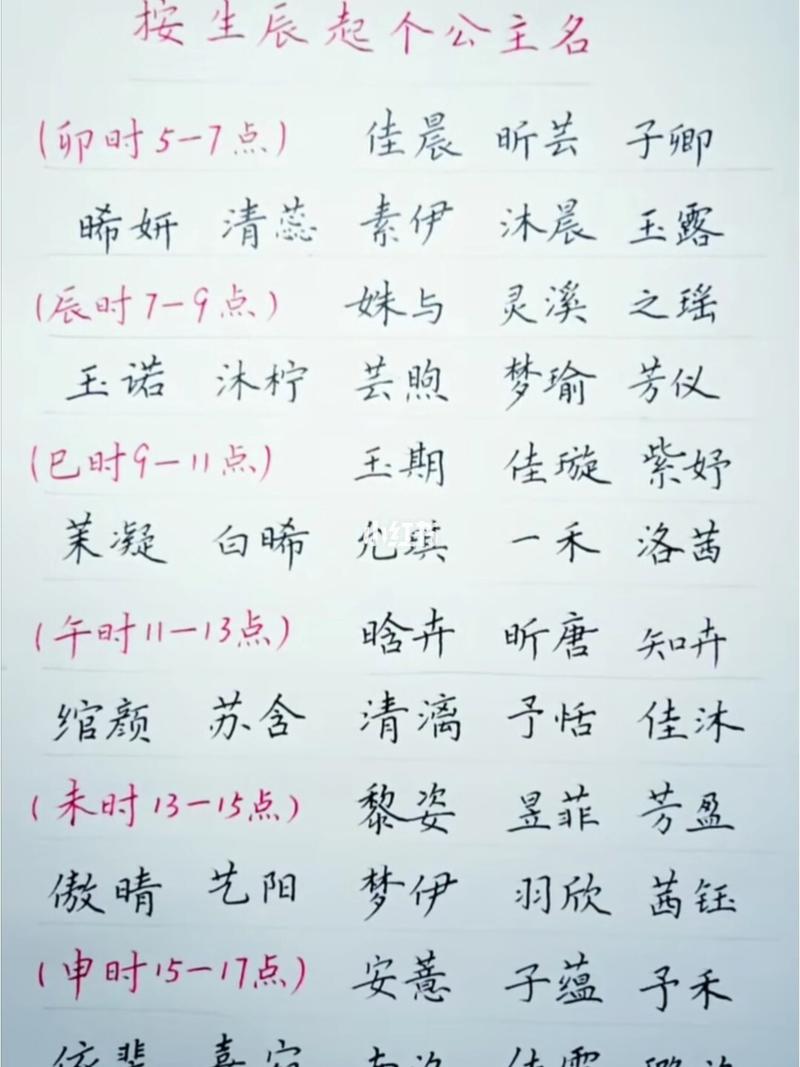 按生辰起个公主名
(卯时5-7点) 佳晨 昕芸 子卿
晞妍 清蕊 素伊 沐晨 玉露
(辰时7-9点) 姝与 灵溪 之瑶
玉诺 沐柠 芸煦 梦瑜 芳仪
(巳时9-11点) 玉期 佳璇 紫妤
茉凝 白晞 允琪 一禾 洛茜
(午时11-13点) 晗卉 昕唐 知卉
绾颜 苏含 清漓 予恬 佳沐
(未时13-15点) 黎姿 昱菲 芳盈
傲晴 艺阳 梦伊 羽欣 茜钰
(申时15-17点) 安薏 子蕴 予禾